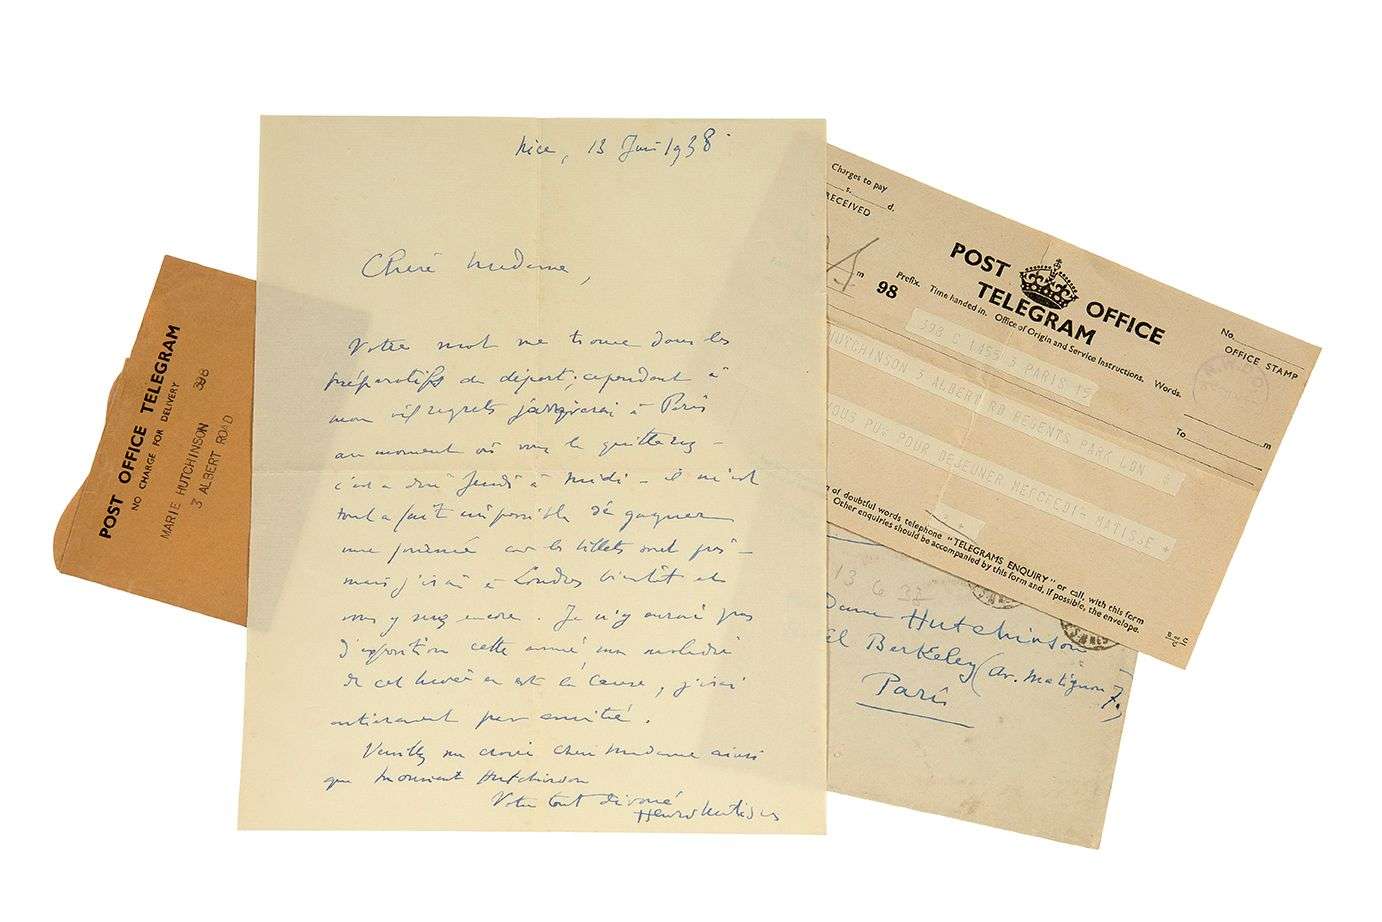 POST OFFICE TELEGRAM
NO CHARGE FOR DELIVERY
398
MARIE HUTCHINSON
3 ALBERT ROAD
Nice, 13 Juin 1938
Chère Madame,
Votre mot me trouve dans les
préparatifs du départ, cependant à
mon vif regret j'arriverai à Paris
au moment où vous le quitterez –
c'est à dire Jeudi à midi – il m'est
tout a fait impossible de gagner
une journée car les billets sont pris –
mais j'irai à Londres bientôt et
vous y serez encore. Je n'y aurai pas
d'exposition cette année ma maladie
de cet hiver en est la cause, j'irai
entièrement par amitié.
Veuillez me croire chère Madame ainsi
que Monsieur Hutchinson
Votre tout dévoué
Henri Matisse
Charges to pay
s. d.
RECEIVED
POST OFFICE
TELEGRAM
No.
OFFICE STAMP
m
98
Prefix. Time handed in. Office of Origin and Service Instructions. Words.
393 C 1455 3 PARIS 15
To m
HUTCHINSON 3 ALBERT RD REGENTS PARK LDN
VOUS PUR JOUR DEJEUNER MERCREDI- MATISSE +
of doubtful words telephone "TELEGRAMS ENQUIRY" or call, with this form
Other enquiries should be accompanied by this form and, if possible, the envelope.
B or C
13 6
dame Hutchinson
el Berkeley (av. Matignon 7.)
Paris